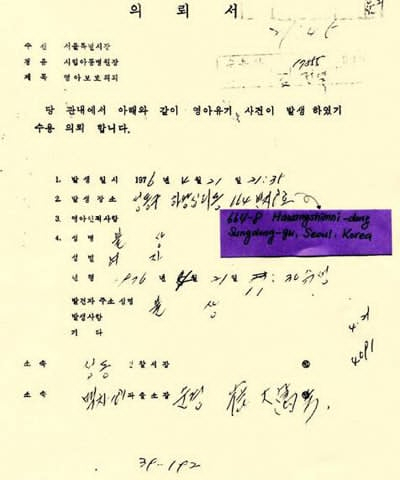 의 뢰 서
수 신 서울특별시장
경 유 시립아동병원장
제 목 영아보호의뢰
당 관내에서 아래와 같이 영아유기 사건이 발생 하였기
수용 의뢰 합니다.
1. 발 생 일 시 1976 년 4 월 21 일 21:35
2. 발 생 장 소 성동구 하왕십리동 664
664-8 Hawangshimni-dong
Sungdong-gu, Seoul, Korea
3. 영아인적사항
4. 성 명 불 상
성 별 여 자
년 령 1976 4 월 21 일
발견자 주소 성명 불 상
발생사항
기 타
소 속 성동 경찰서장
소 속 파출소장
39-192